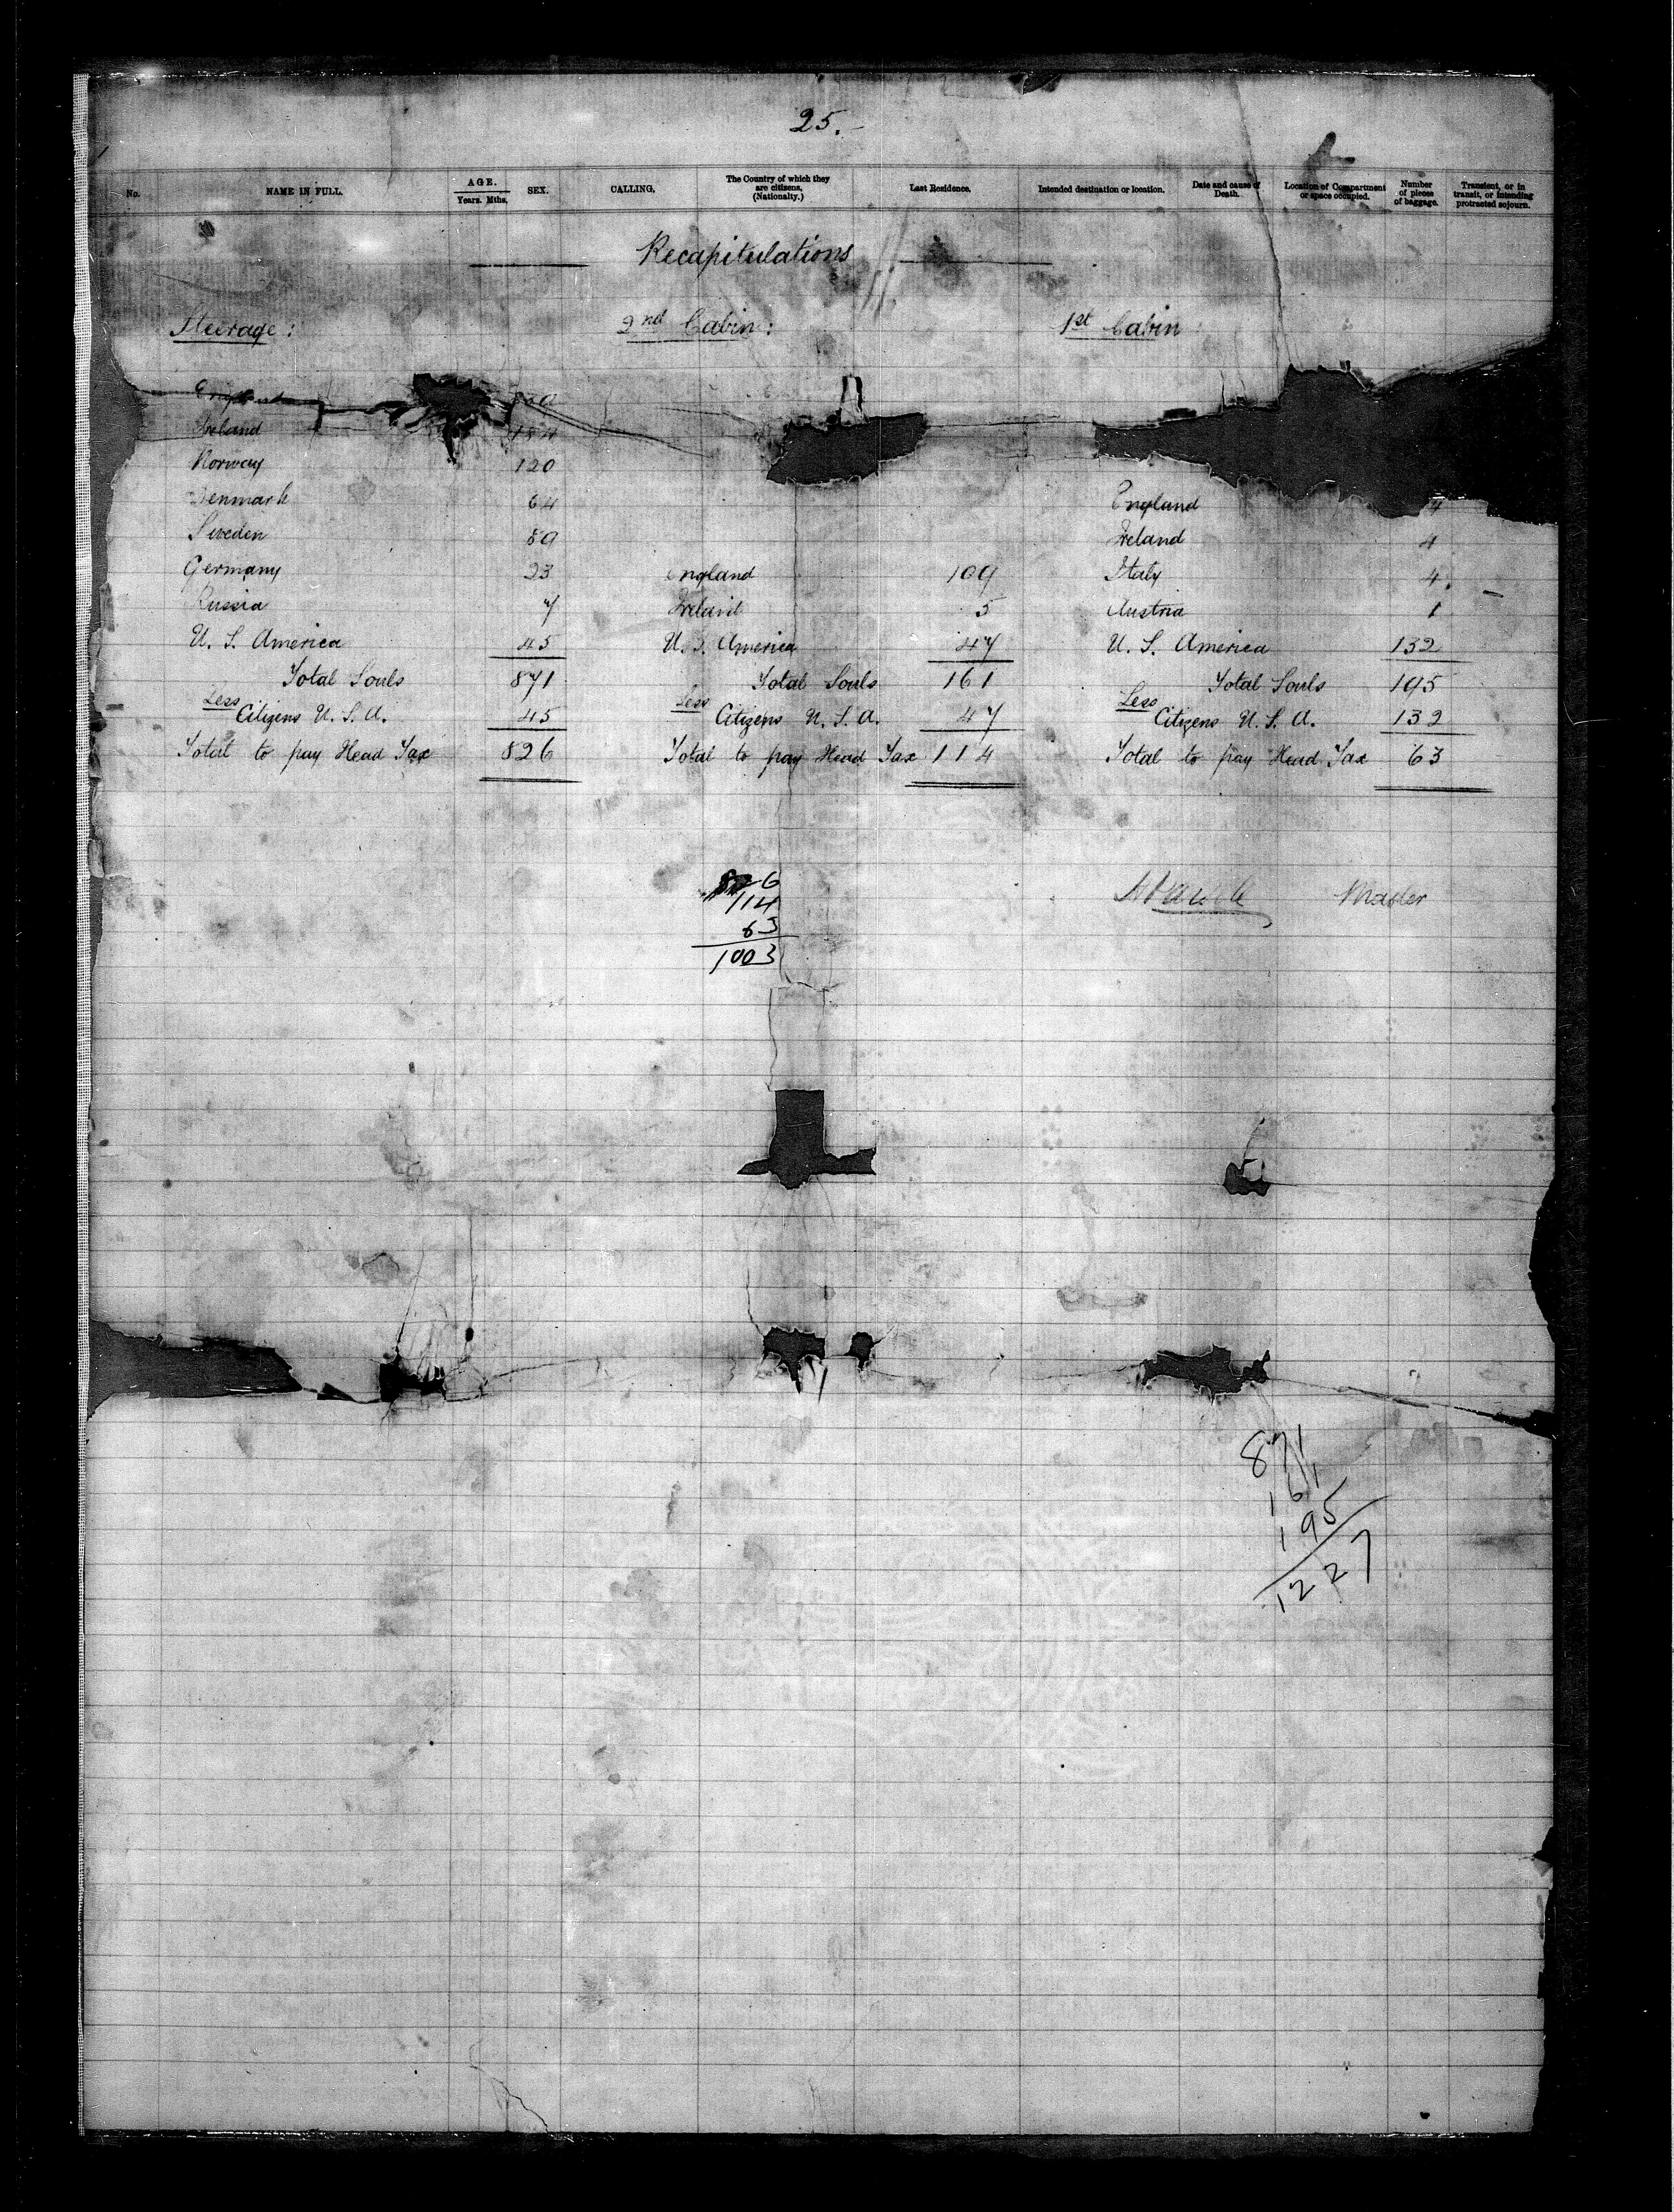 25.
No.
NAME IN FULL.
AGE.
Years. Mths.
SEX.
CALLING.
The Country of which they
are citizens,
(Nationality.)
Last Residence.
Intended destination or location.
Date and cause of
Death.
Location of Compartment
or space occupied.
Number
of pieces
of baggage.
Transient, or in
transit, or intending
protracted sojourn.
Recapitulations
Steerage:
England
Ireland 184
Norway 120
Denmark 64
Sweden 89
Germany 23
Russia 7
U. S. America 45
Total Souls 871
Less
Citizens U. S. A. 45
Total to pay Head Tax 826
2nd Cabin:
England 109
Ireland 5
U. S. America 47
Total Souls 161
Less
Citizens U. S. A. 47
Total to pay Head Tax 114
1st Cabin:
England 4
Ireland 4
Italy 4
Austria 1
U. S. America 132
Total Souls 195
Less
Citizens U. S. A. 132
Total to pay Head Tax 63
826
114
63
1003
Master
871
161
195
1227